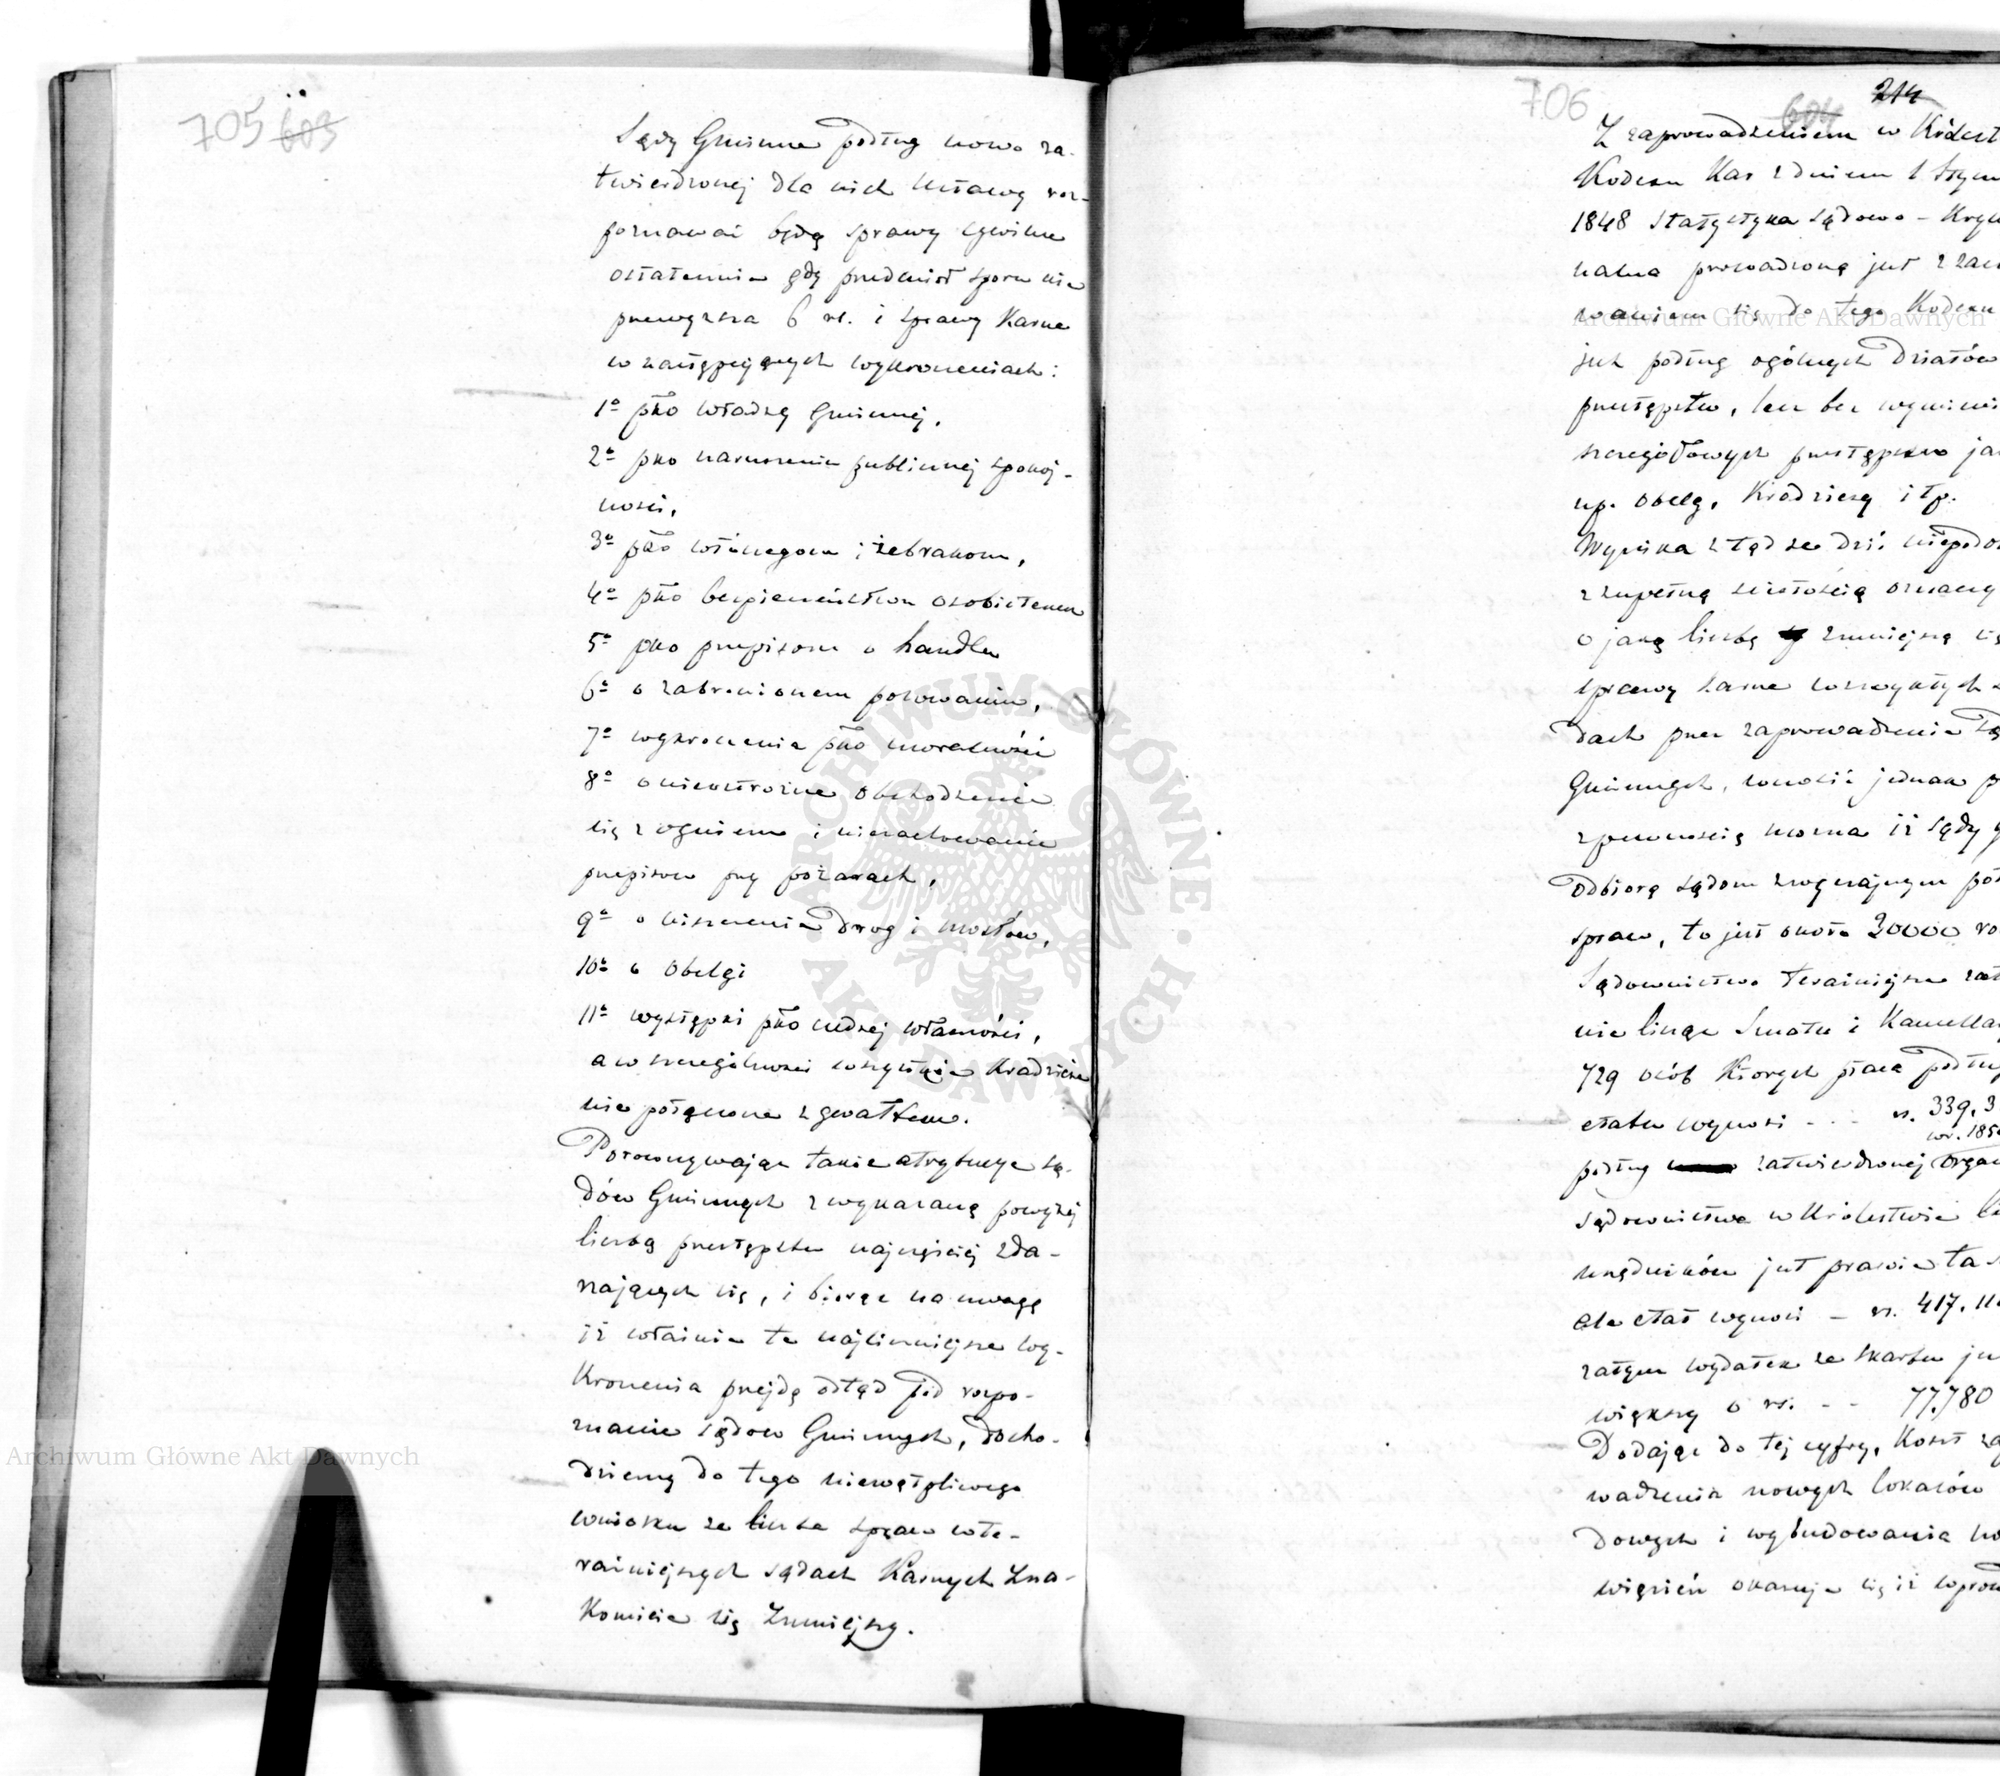 705 603
Sądy Gminne podług nowo za-
twierdzonej dla nich Ustawy roz-
poznawać będą sprawy cywilne
ostatecznie gdy przedmiot sporu nie
przewyższa 6 rs. i sprawy Karne
w następujących wykroczeniach:
1º pko władzy Gminnej,
2º pko naruszeniu publicznej spokoj-
ności,
3º pko włóczęgom i żebrakom,
4º pko bezpieczeństwu osobistemu
5º pko przepisom o handlu
6º o zabronionem polowaniu,
7º wykroczenia pko moralności
8º o nieostrożne obchodzenie
się z ogniem i niezachowanie
przepisów przy pożarach,
9º o niszczenie drog i mostów,
10º o Obelgi
11º występki pko cudzej własności,
a w szczególności wszystkie Kradzieże
nie połączone z gwałtem.
Porównywając takie atrybucye Są-
dów Gminnych z wykazaną powyżej
liczbą przestępstw najczęściej zda-
rzających się, i biorąc na uwagę
iż właśnie te najliczniejsze wy-
Kroczenia przejdą odtąd pod rozpo-
znanie sądow Gminnych, docho-
dziemy do tego niewątpliwego
wniosku ze liczba spraw w te-
raźniejszych sądach Karnych Zna-
Komicie się Zmniejszy.
706 604 214
Z zaprowadzeniem w Królest
Kodexu Kar z dniem 1 Stycz
1848 Statystyka sądowo - Krym
nalna prowadzoną jest z za
waniem się do tego Kodexu
jest podług ogólnych Działów
przestępstw, lecz bez wymieni
szczegółowych przestępstw ja
np. Obelg, Kradzieży i tp.
Wynika ztąd ze dziś niepodo
z zupełną ścisłością oznaczy
o jaką liczbę zmniejszą się
sprawy karne w zwykłych
dach przez zaprowadzenie Są
Gminnych, wnosić jednak p
z pewnością można iż sądy g
odbiorą sądom zwyczajnym poł
spraw, to jest około 20000 ro
Sądownictwo teraźniejsze
nie licząc Senatu i Kancellar
729 osób Których płaca podług
etatu wynosi - - - rs. 339,3
w r. 185
podług zatwierdzonej Organ
sądownictwa w Królestwie li
urzędników jest prawie ta
ale etat wynosi - rs. 417,11
zatym wydatek ze skarbu je
większy o rs. - - 77,780
Dodając do tej cyfry, Koszt za
wadzenia nowych lokalów
dowych i wybudowania no
więzień okazuje się iż wprow
Archiwum Główne Akt Dawnych
Archiwum Główne Akt Dawnych
ARCHIWUM GŁÓWNE · AKT DAWNYCH ·